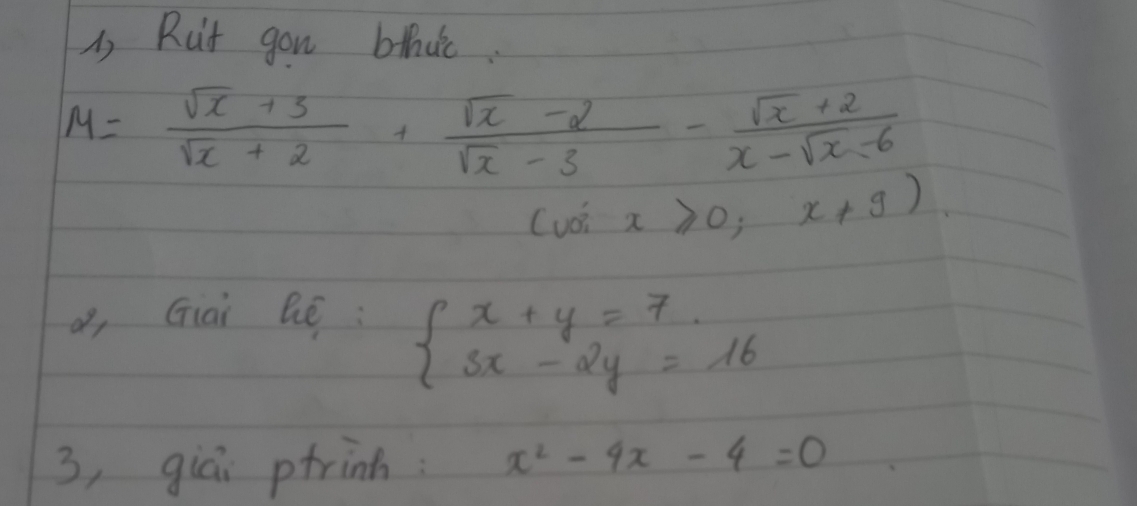 1, Rút gọn bthức.
M = \frac{\sqrt{x} + 3}{\sqrt{x} + 2} + \frac{\sqrt{x} - 2}{\sqrt{x} - 3} - \frac{\sqrt{x} + 2}{x - \sqrt{x} - 6}
(với x ⩾ 0; x ≠ 9).
2, Giải hệ : { x + y = 7.
3x - 2y = 16
3, giải ptrình : x² - 4x - 4 = 0.